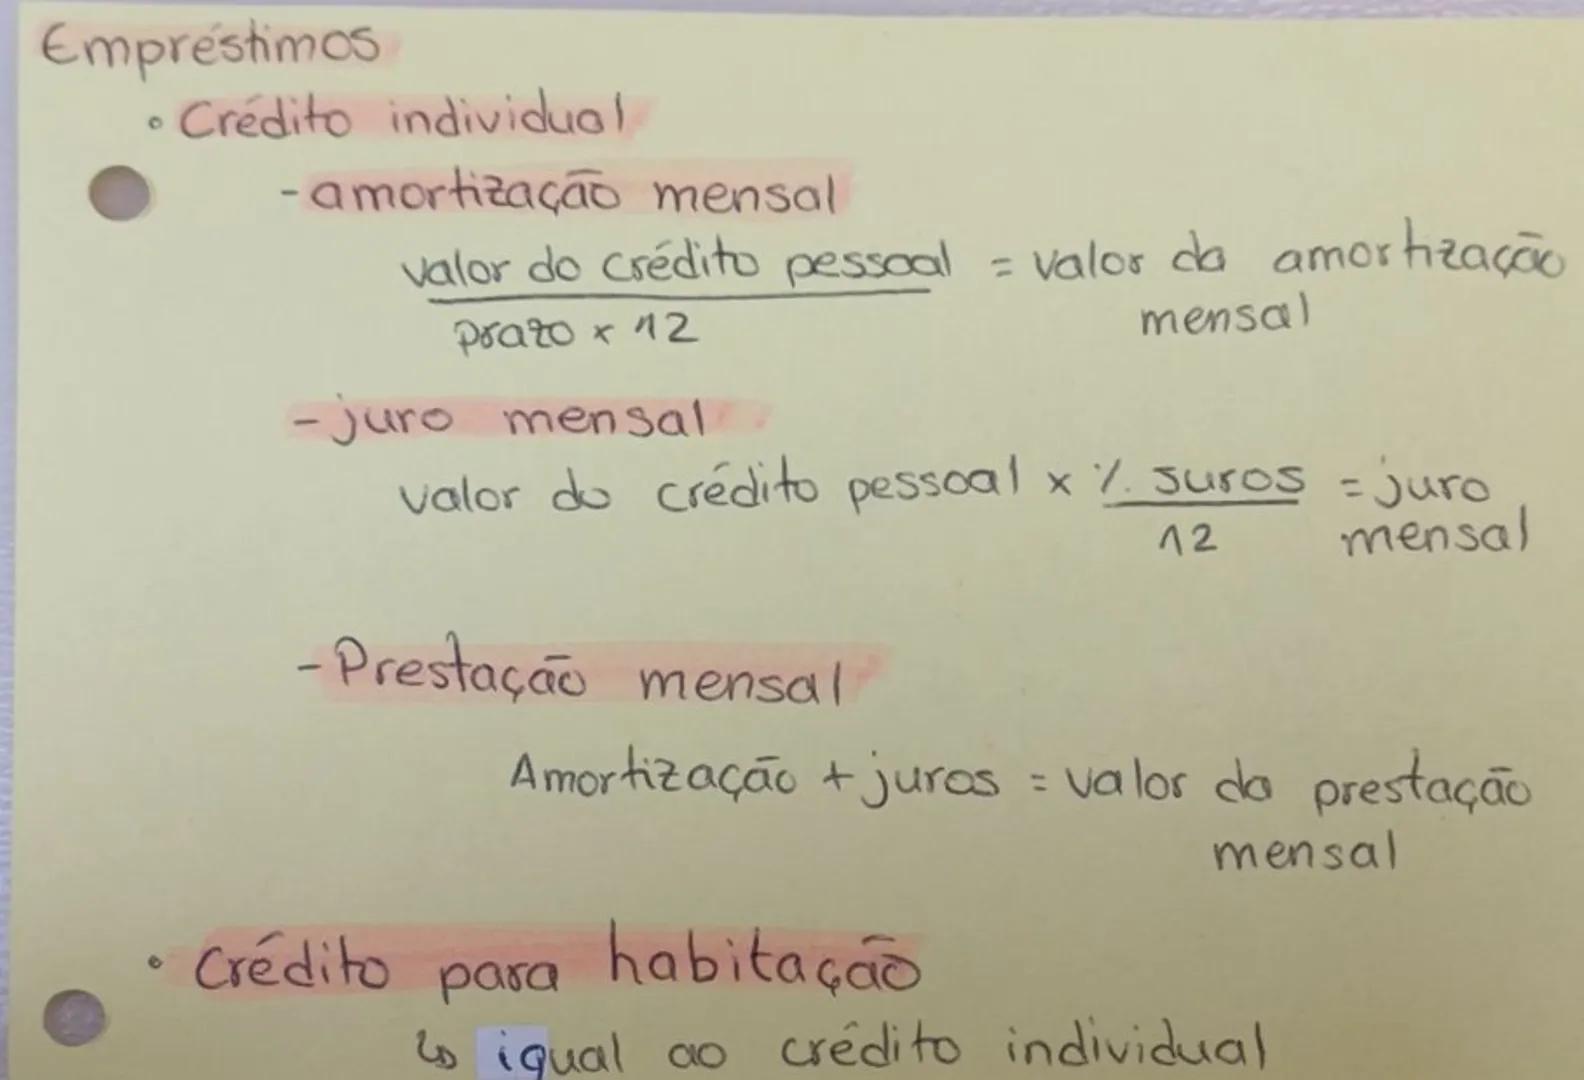 Empréstimos
• Crédito individual
- amortização mensal
valor do crédito pessoal = valor da amortização
prazo x 12 mensal
- juro mensal
valor do crédito pessoal x % juros = juro
12 mensal
- Prestação mensal
Amortização + juros = valor da prestação
mensal
• Crédito para habitação
↳ igual ao crédito individual